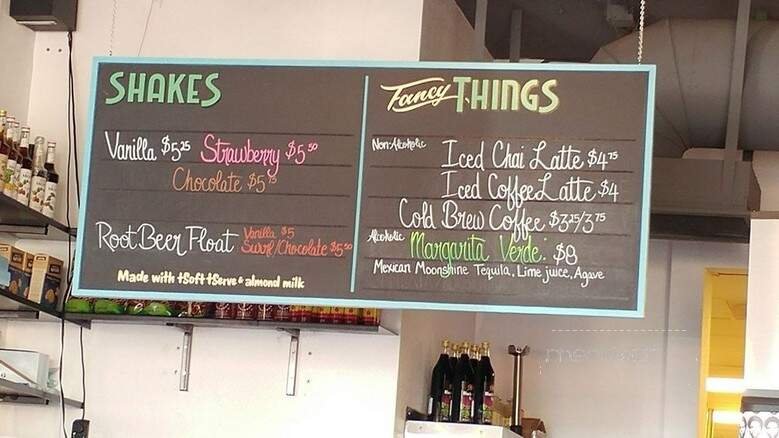 SHAKES
Vanilla $5.25 Strawberry $5.50
Chocolate $5.75
Root Beer Float Vanilla $5
Swirl/Chocolate $5.50
Made with tSofttServe & almond milk
Fancy THINGS
Non-Alcoholic
Iced Chai Latte $4.75
Iced Coffee Latte $4
Cold Brew Coffee $3.25/3.75
Alcoholic
Margarita Verde: $8
Mexican Moonshine Tequila, Lime juice, Agave